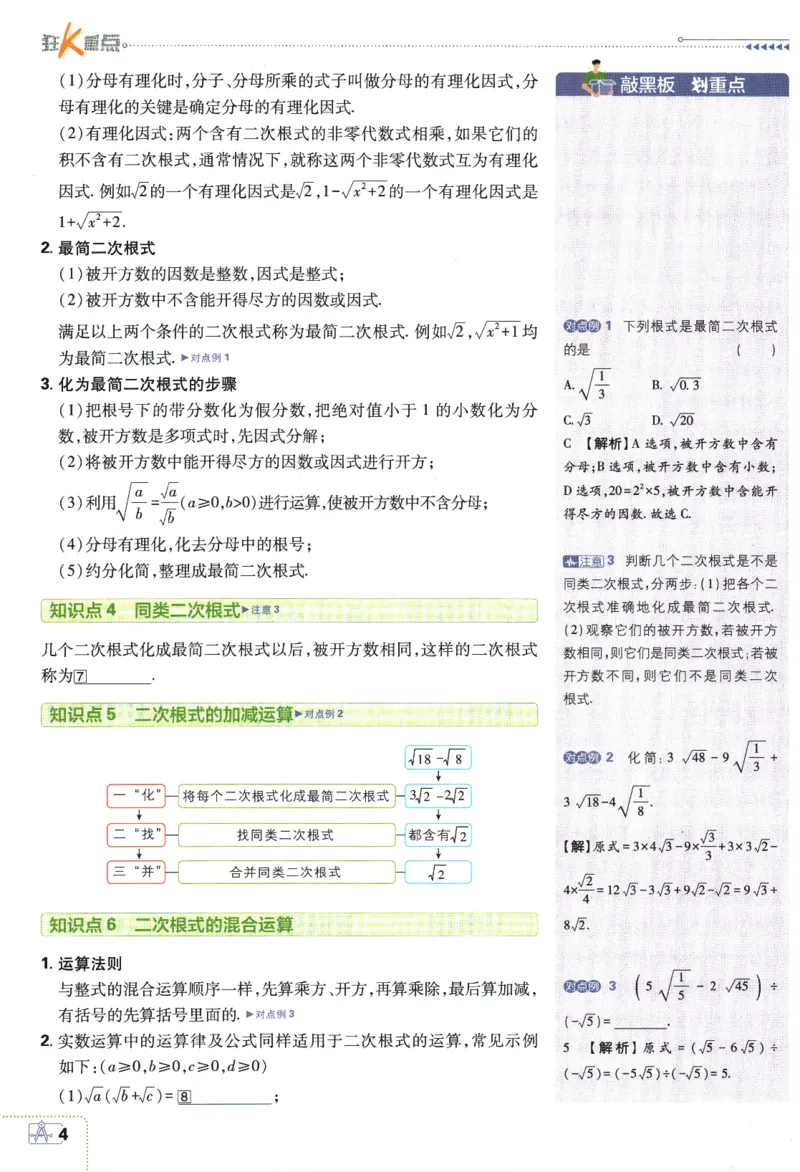 狂K重点
(1)分母有理化时,分子、分母所乘的式子叫做分母的有理化因式,分
母有理化的关键是确定分母的有理化因式.
(2)有理化因式:两个含有二次根式的非零代数式相乘,如果它们的
积不含有二次根式,通常情况下,就称这两个非零代数式互为有理化
因式. 例如√2的一个有理化因式是√2,1-√(x²+2)的一个有理化因式是
1+√(x²+2).
2. 最简二次根式
(1)被开方数的因数是整数,因式是整式;
(2)被开方数中不含能开得尽方的因数或因式.
满足以上两个条件的二次根式称为最简二次根式. 例如√2,√(x²+1)均
为最简二次根式. ▶对点例1
3. 化为最简二次根式的步骤
(1)把根号下的带分数化为假分数,把绝对值小于 1 的小数化为分
数,被开方数是多项式时,先因式分解;
(2)将被开方数中能开得尽方的因数或因式进行开方;
(3)利用√(a/b)=√a/√b(a≥0,b>0)进行运算,使被开方数中不含分母;
(4)分母有理化,化去分母中的根号;
(5)约分化简,整理成最简二次根式.
知识点4 同类二次根式▶注意3
几个二次根式化成最简二次根式以后,被开方数相同,这样的二次根式
称为7________.
知识点5 二次根式的加减运算▶对点例2
√18-√8
一“化” 将每个二次根式化成最简二次根式 3√2-2√2
二“找” 找同类二次根式 都含有√2
三“并” 合并同类二次根式 √2
知识点6 二次根式的混合运算
1. 运算法则
与整式的混合运算顺序一样,先算乘方、开方,再算乘除,最后算加减,
有括号的先算括号里面的. ▶对点例3
2. 实数运算中的运算律及公式同样适用于二次根式的运算,常见示例
如下:(a≥0,b≥0,c≥0,d≥0)
(1)√a(√b+√c)=8__________;
4
敲黑板 划重点
对点例1 下列根式是最简二次根式
的是 ( )
A. √(1/3) B. √0.3
C. √3 D. √20
C 【解析】A 选项,被开方数中含有
分母;B 选项,被开方数中含有小数;
D 选项,20=2²×5,被开方数中含能开
得尽方的因数. 故选 C.
注意3 判断几个二次根式是不是
同类二次根式,分两步:(1)把各个二
次根式准确地化成最简二次根式.
(2)观察它们的被开方数,若被开方
数相同,则它们是同类二次根式;若被
开方数不同,则它们不是同类二次
根式.
对点例2 化简:3√48-9√(1/3)+
3√18-4√(1/8).
【解】原式=3×4√3-9×√3/3+3×3√2-
4×√2/4=12√3-3√3+9√2-√2=9√3+
8√2.
对点例3 (5√(1/5)-2√45)÷
(-√5)=________.
5 【解析】原式=(√5-6√5)÷
(-√5)=(-5√5)÷(-√5)=5.